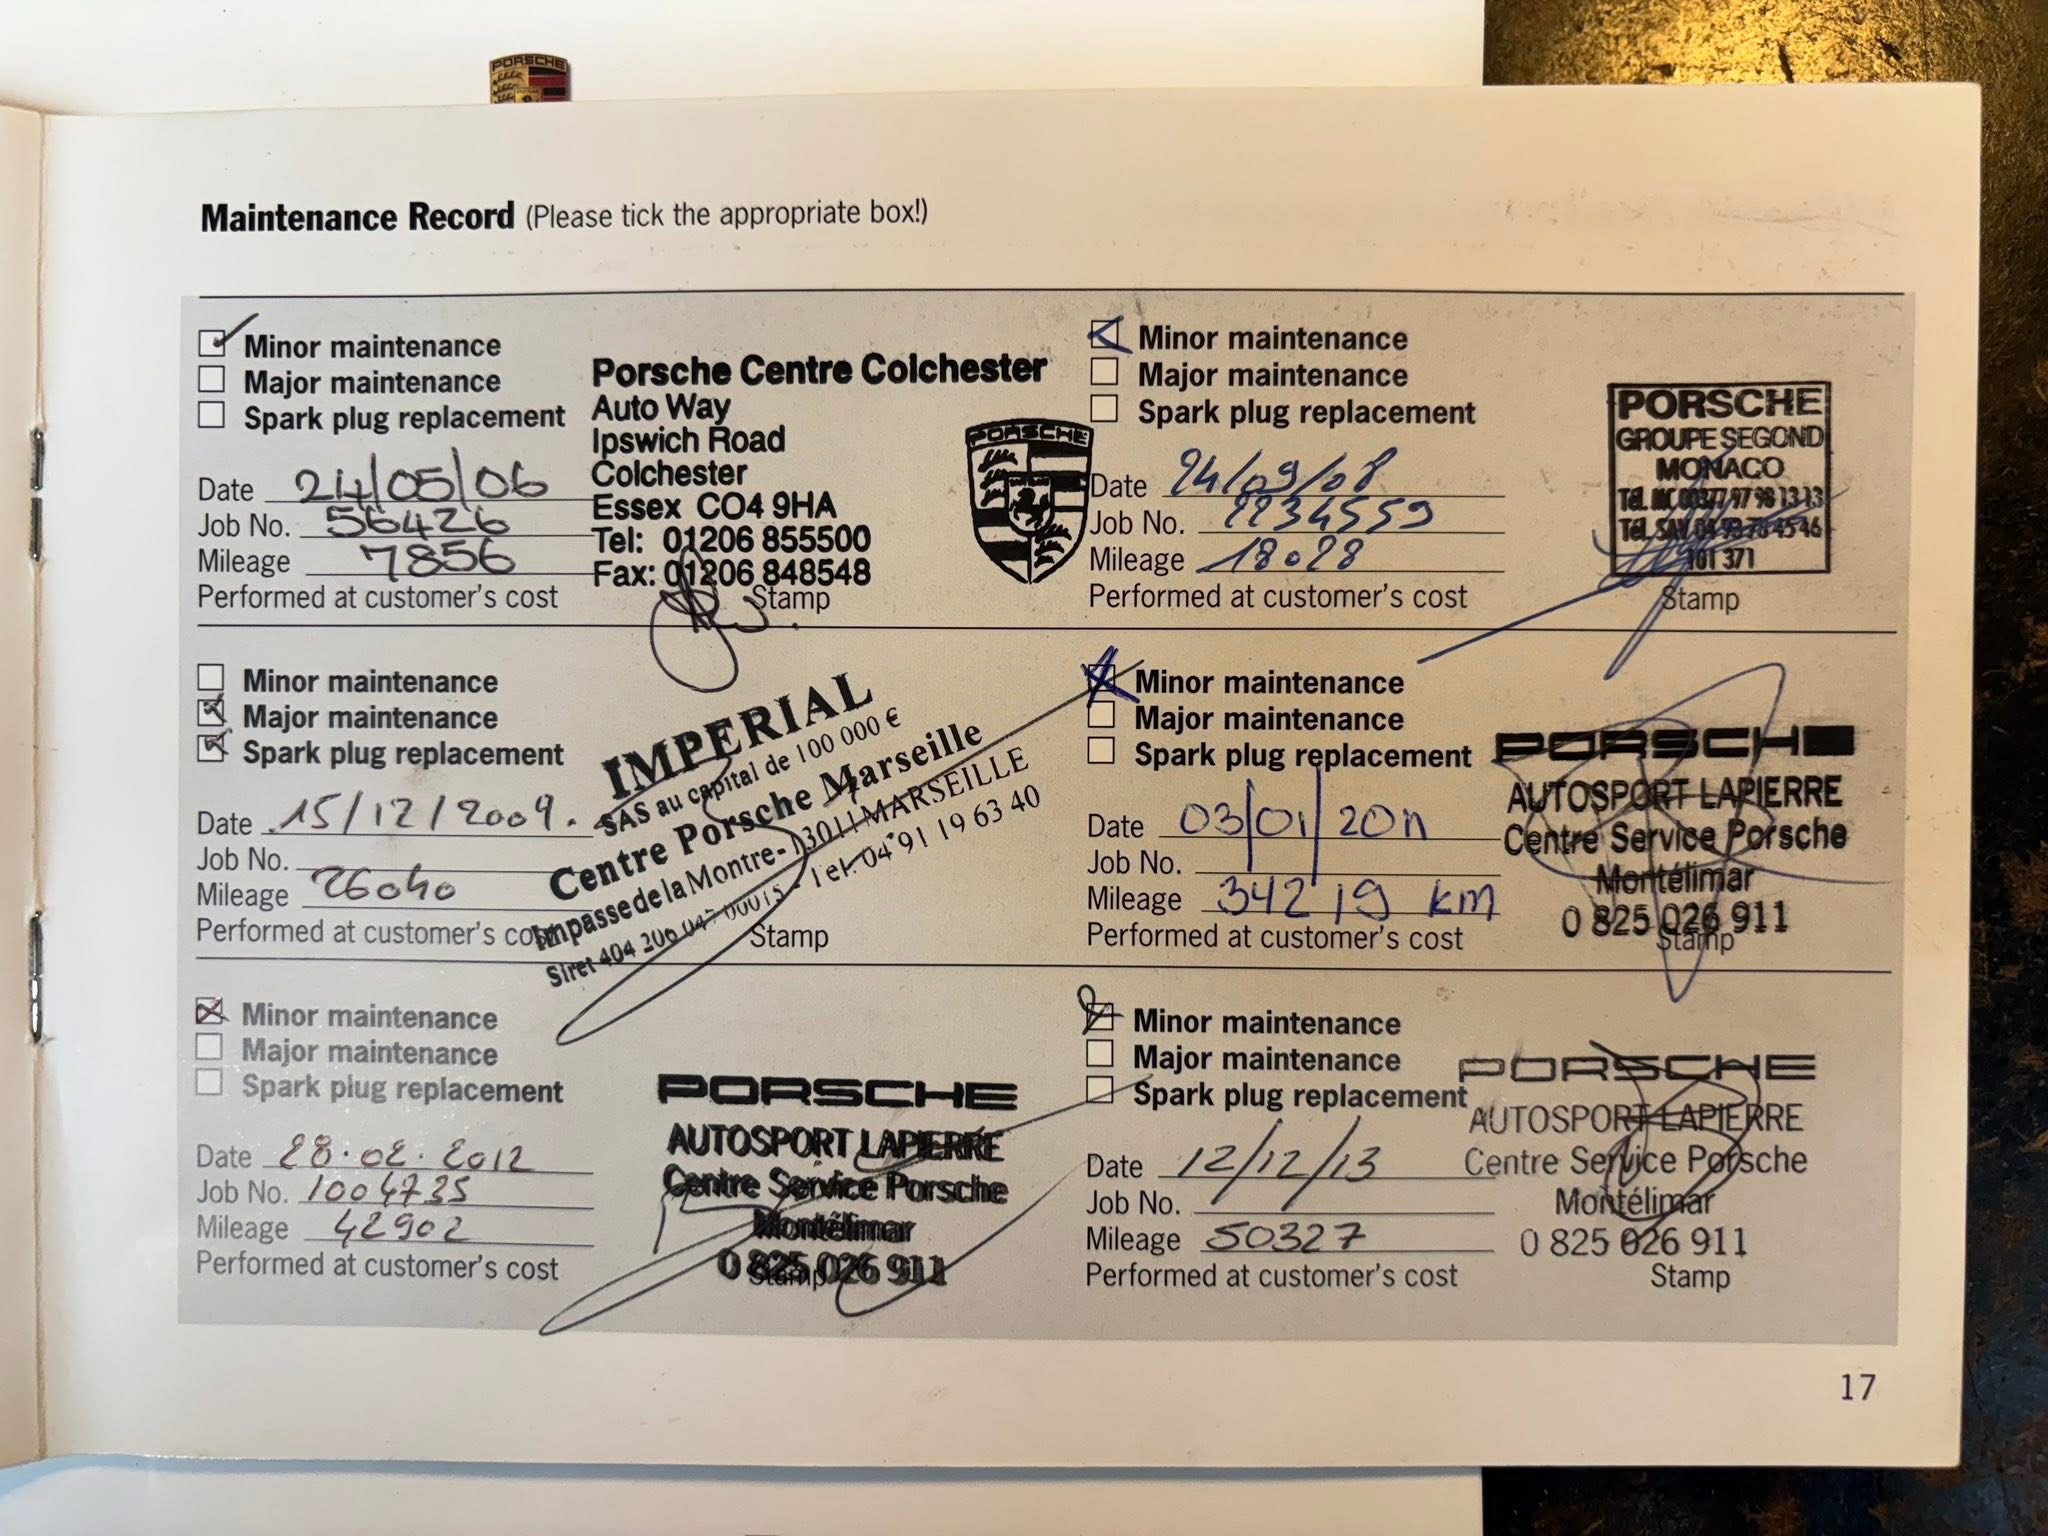 PORSCHE
Maintenance Record (Please tick the appropriate box!)
Minor maintenance
Major maintenance
Spark plug replacement
Date 24/05/06
Job No. 56426
Mileage 7856
Performed at customer's cost
Porsche Centre Colchester
Auto Way
Ipswich Road
Colchester
Essex CO4 9HA
Tel: 01206 855500
Fax: 01206 848548
Stamp
PORSCHE
Minor maintenance
Major maintenance
Spark plug replacement
Date 24/09/08
Job No. 2234559
Mileage 18028
Performed at customer's cost
PORSCHE
GROUPE SEGOND
MONACO
Tél. MC 00377 97 98 13 13
Tél. SAV 04 93 78 45 46
101 371
Stamp
Minor maintenance
Major maintenance
Spark plug replacement
Date 15/12/2009.
Job No.
Mileage 26040
Performed at customer's
IMPERIAL
SAS au capital de 100 000 €
Centre Porsche Marseille
Impasse de la Montre - 13011 MARSEILLE
Siret 404 206 047 00015 - Tel. 04 91 19 63 40
Stamp
Minor maintenance
Major maintenance
Spark plug replacement
Date 03/01/2011
Job No.
Mileage 34219 km
Performed at customer's cost
PORSCHE
AUTOSPORT LAPIERRE
Centre Service Porsche
Montélimar
0 825 026 911
Stamp
Minor maintenance
Major maintenance
Spark plug replacement
Date 28.02.2012
Job No. 1004735
Mileage 42902
Performed at customer's cost
PORSCHE
AUTOSPORT LAPIERRE
Centre Service Porsche
Montélimar
0 825 026 911
Stamp
Minor maintenance
Major maintenance
Spark plug replacement
Date 12/12/13
Job No.
Mileage 50327
Performed at customer's cost
PORSCHE
AUTOSPORT LAPIERRE
Centre Service Porsche
Montélimar
0 825 026 911
Stamp
17